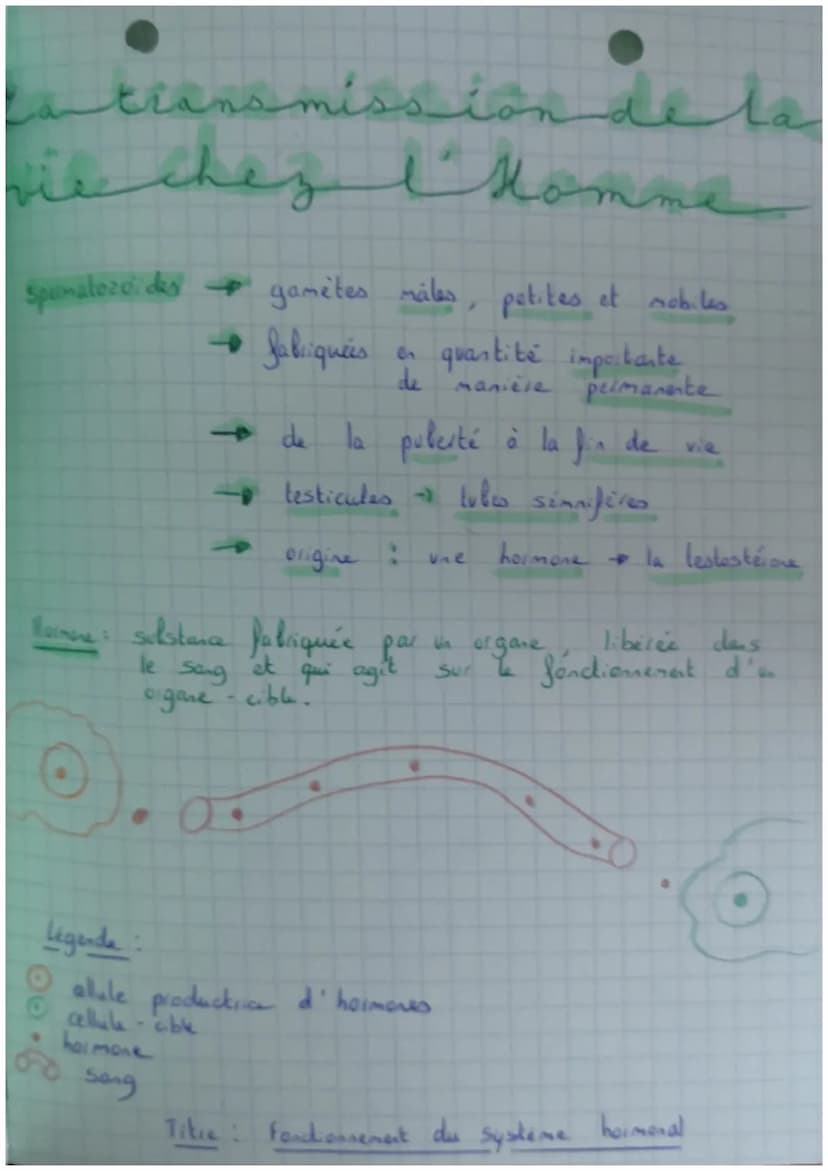 La transmission de la
vie chez l'Homme
Spermatozoïdes → gamètes mâles, petites et mobiles
→ fabriquées en quantité importante
de manière permanente
→ de la puberté à la fin de vie
→ testicules → tubes séminifères
→ origine : une hormone → la testostérone
Hormone : substance fabriquée par un organe, libérée dans
le sang et qui agit sur le fonctionnement d'un
organe-cible.
Légende :
cellule productrice d'hormones
cellule-cible
hormone
sang
Titre : Fonctionnement du système hormonal